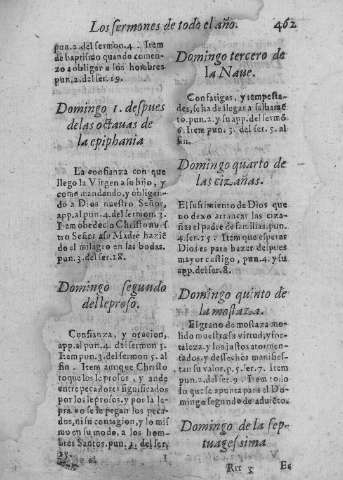 Los sermones de todo el año. 462
pun. 2. del sermon. 4. Item
de baptismo quando comen-
zo a obligar a los hombres
pun. 2. del ser. 19.
Domingo 1. despues
de las octauas de
la epiphania
La confianza con que
llego la Virgen a su hijo, y
como mandando, y obligan-
do a Dios nuestro Señor,
app. al pun. 4. del sermon. 3.
Item obedecio Christo nue
stro Señor a su Madre hazié
do el milagro en las bodas.
pun. 3. del ser. 28.
Domingo segundo
del leproso.
Confianza, y oracion,
app. al pun. 4. del sermon 3.
Item pun. 3. del sermon 5. al
fin. Item aunque Christo
toque los leprosos, y ande
entre pecadores significados
por los leprosos, y por la le-
pra no se le pegan los peca-
dos, ni su contagion, y lo mis
mo en su modo, a los hom-
bres Santos. pun. 2. del ser.
Domingo tercero de
la Naue.
Con fatigas, y tempesta-
des, se ha de llegar a
pun. 2. y su app. del sermō
6. Item pun. 3. del ser. 5. al
fin.
Domingo quarto de
las cizañas.
El sufrimiento de Dios que
no dexo arrancar las ciza
ñas el padre de familias. pun.
4. ser. 25. Item que esperar
Dios es para hazer despues
mayor castigo, pun. 4. y su
app. del ser. 8.
Domingo quinto de
la mostaza.
El grano de mostaza mo-
lido muestra su virtud, y for-
taleza y los justos atormen-
tados, y deshechos manifes-
tan su valor. p. 5. ser. 7. Item
pun. 2. del ser. 9. Item todo
lo que se apunta para el Do-
mingo segundo de aduiēto.
Domingo de la sep-
tuagessima
Rrr 3 Es